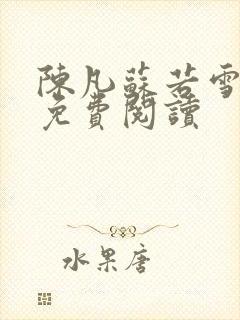 陳凡蘇若雪
免費閱讀
水果唐